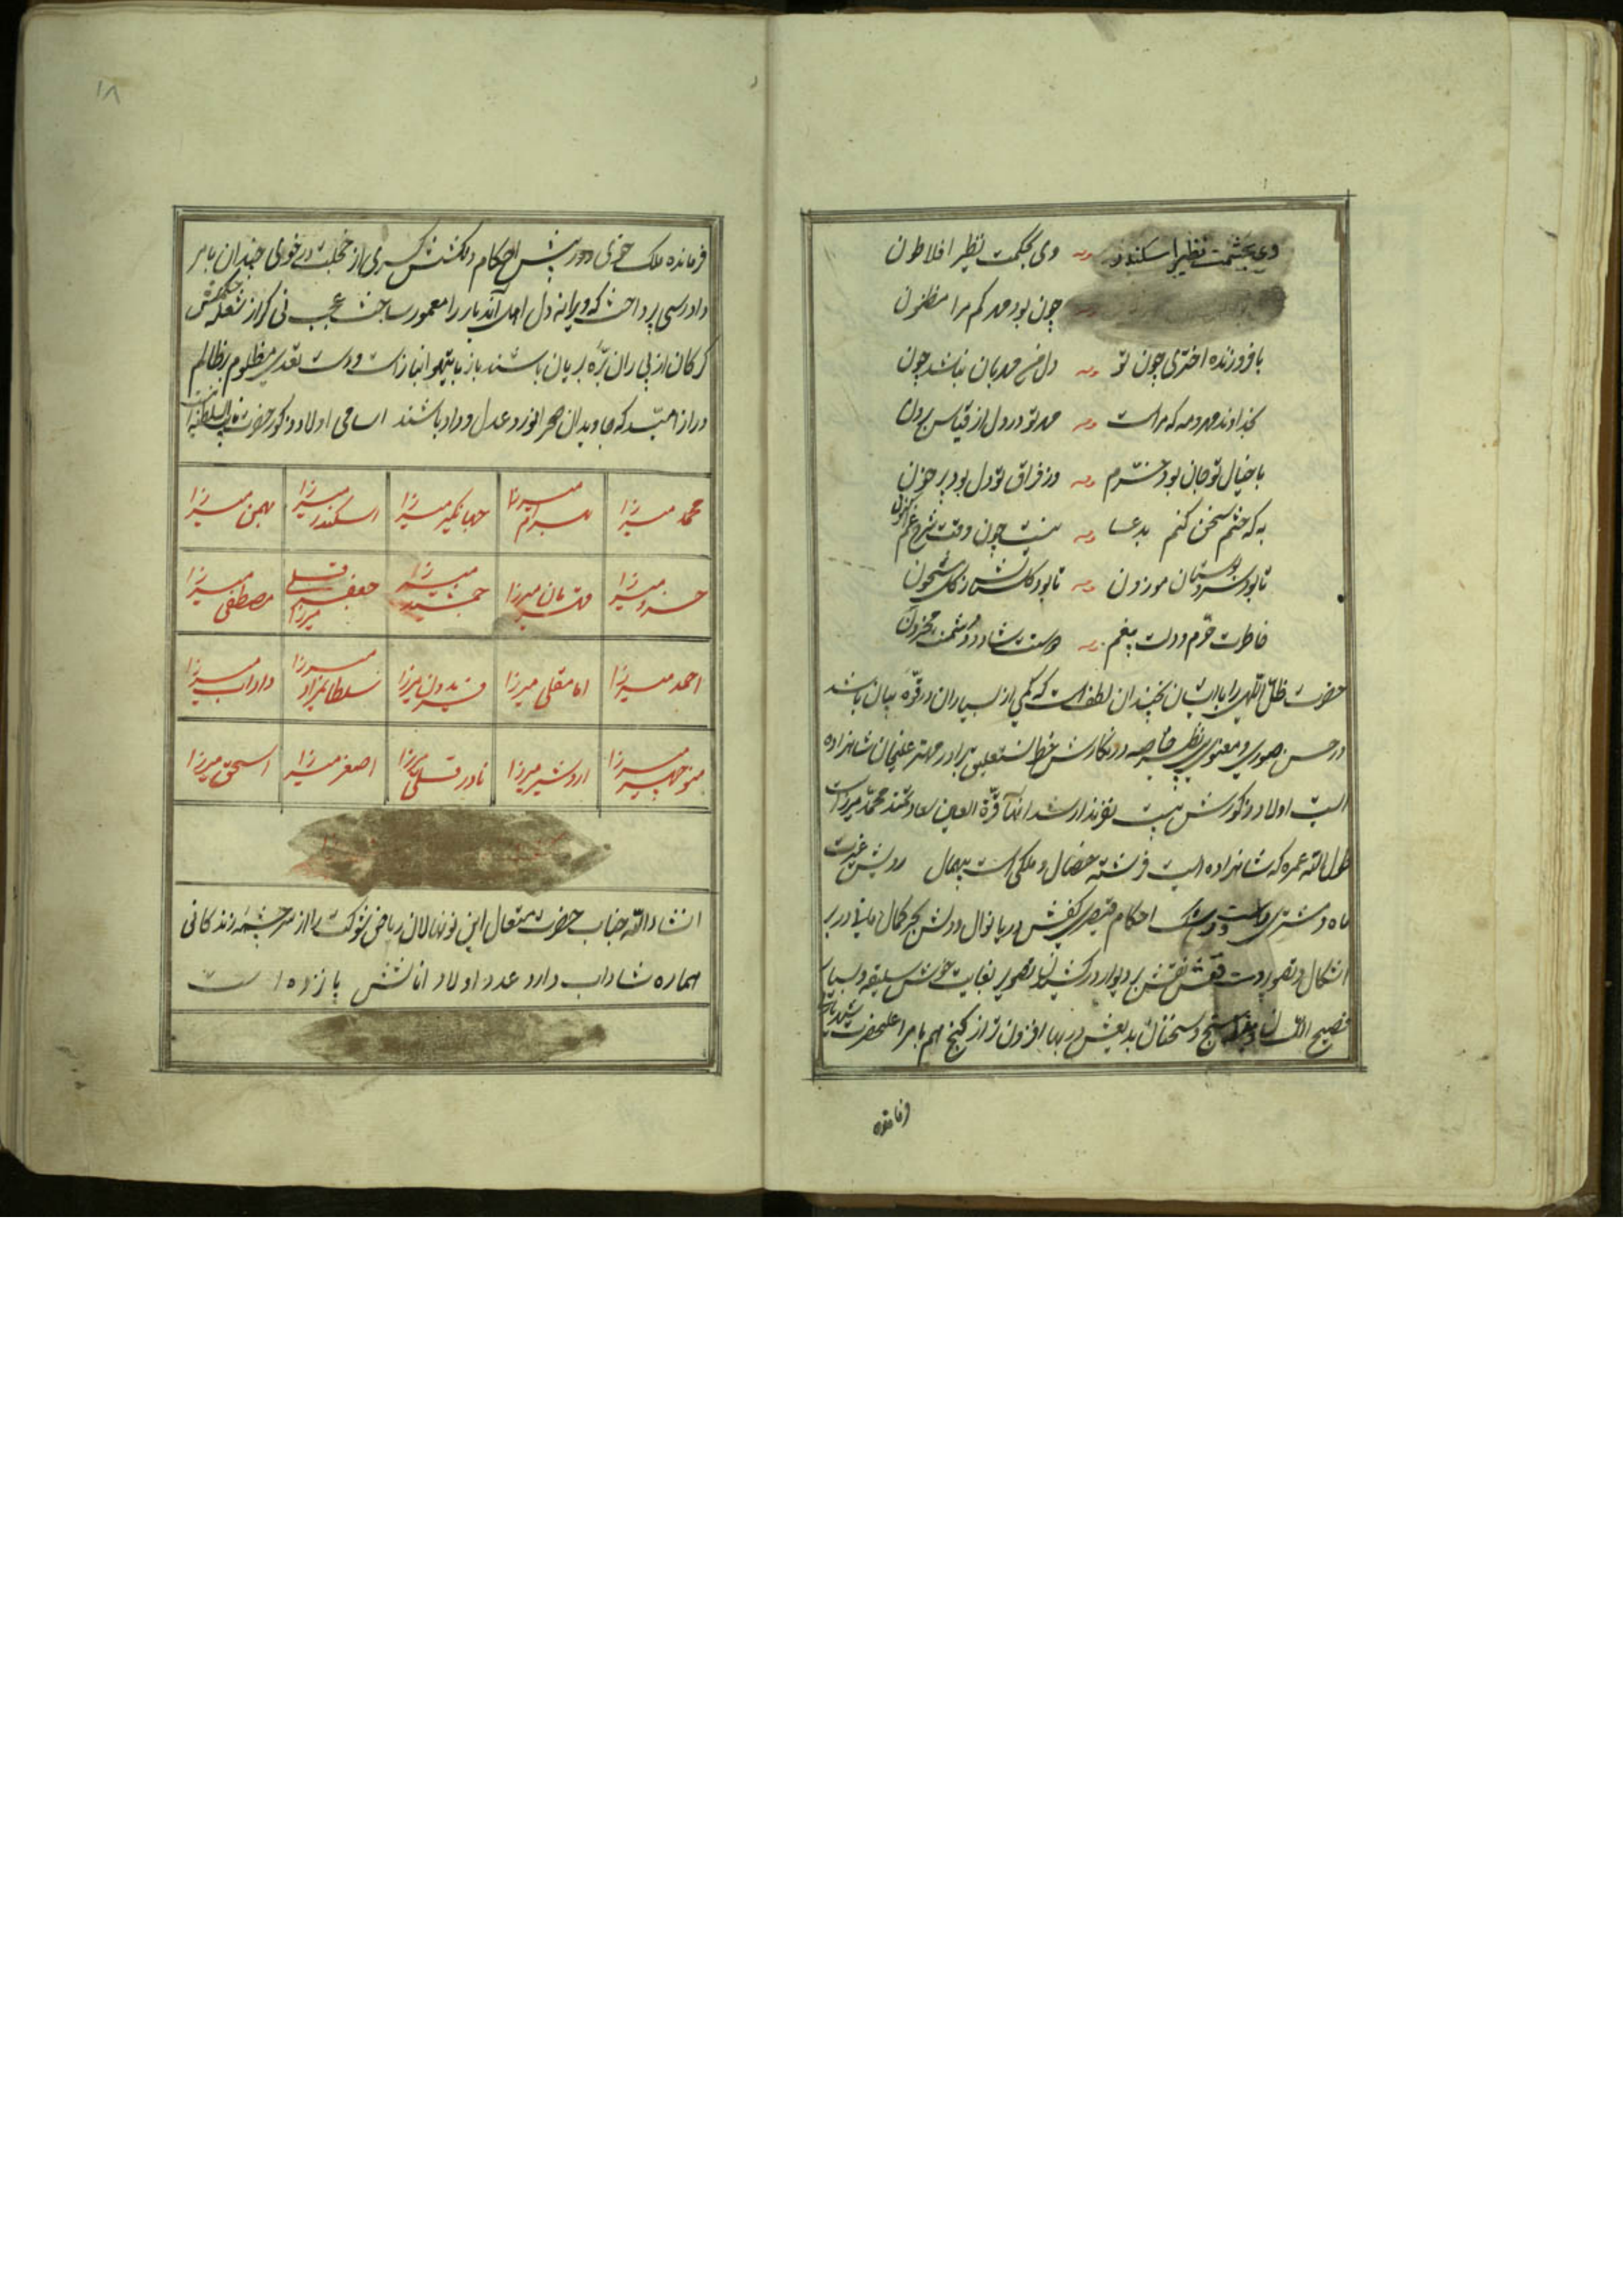 دی بحشمت نظیر اسکندر وی بحکمت نظیر افلاطون
چون بود مهر کم مرا مظنون
با فروزنده اختری چون تو دل من مهربان نباشد چون
بخداوند مهر و مه که مراست مهر تو در دل از قیاس برون
با خیال تو جان بود خرم وز فراق تو دل بود پر خون
به که ختم سخن کنم بدعا نیست چون وقت شرح غم اکنون
تا بود سرو بوستان موزون تا بود گلشن از گل مشحون
خاطرت خرم و دلت بیغم دوستت شاد و دشمنت محزون
حضرت ظل اللهی را با ایشان بچندان لطف است که کمی از بسیاران در قوه بیان باشد
در حسن صوری و معنوی بی نظیر خاصه در نگارش خط نستعلیق برادر مهتر علیخان شاهزاده
است اولاد ذکورش بیست نفرند ارشد انها قرة العین سعادتمند محمد میرزاست
طول الله عمره که شاهزاده ایست فرشته خصال و ملکی است بیهمال رویش غیرت
ماه و مشتری احکام کفش دریا نوال و دلش بحر کمال مانیا در بر
اشکال و تصویرت نقش بر دیوار در تصویر بغایت خوش سلیقه و بسیار
فصیح اللسان و سخنان بدیعش در بها افزون تر از گنج هم بامر اعلیحضرت شهریاری
فرمانده
۱۸
فرمانده ملک خوی و در پیش احکام دلکشش کسری از خجلت در خوی چندان بامر
دادرسی پرداخت که ویرانه دل اهل آندیار را معمور ساخت عجب نی کز از شعله
گرگان از پی ران بره بریان باشند باز با تیهو انباز است و دست تعدی مظلوم بظالم
دراز امید که جاویدان مهر افروز عدل و داد باشند اسامی اولاد ذکور حضرت نایب السلطنه
محمد میرزا بهرام میرزا جهانگیر میرزا اسکندر میرزا بهمن میرزا
خسرو میرزا قهرمان میرزا جمشید میرزا جعفر قلی میرزا مصطفی میرزا
احمد میرزا امامقلی میرزا فریدون میرزا سلطانمراد میرزا داراب میرزا
منوچهر میرزا اردشیر میرزا نادر قلی میرزا اصغر میرزا اسحق میرزا
انشاءالله جناب حضرت متعال این نونهالان ریاض شوکت را از سرچشمه زندگانی
هماره شاداب دارد عدد اولاد اناثش پانزده است